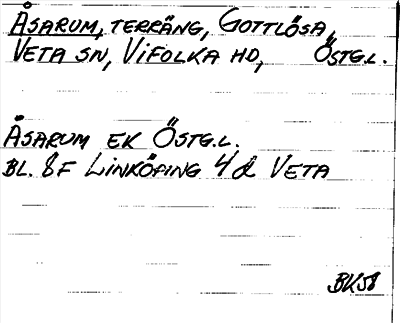 Åsarum, terräng, Gottlösa,
Veta sn, Vifolka hd, Östg.l.
Åsarum ek Östg.l.
Bl. 8F Linköping 4 d Veta
BK58